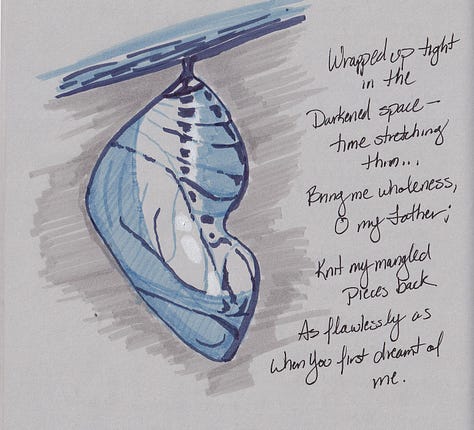 Wrapped up tight
in the
Darkened space —
time stretching
thin...
Bring me wholeness,
O my Father;
Knit my mangled
Pieces back
As flawlessly as
When You first dreamt of
me.